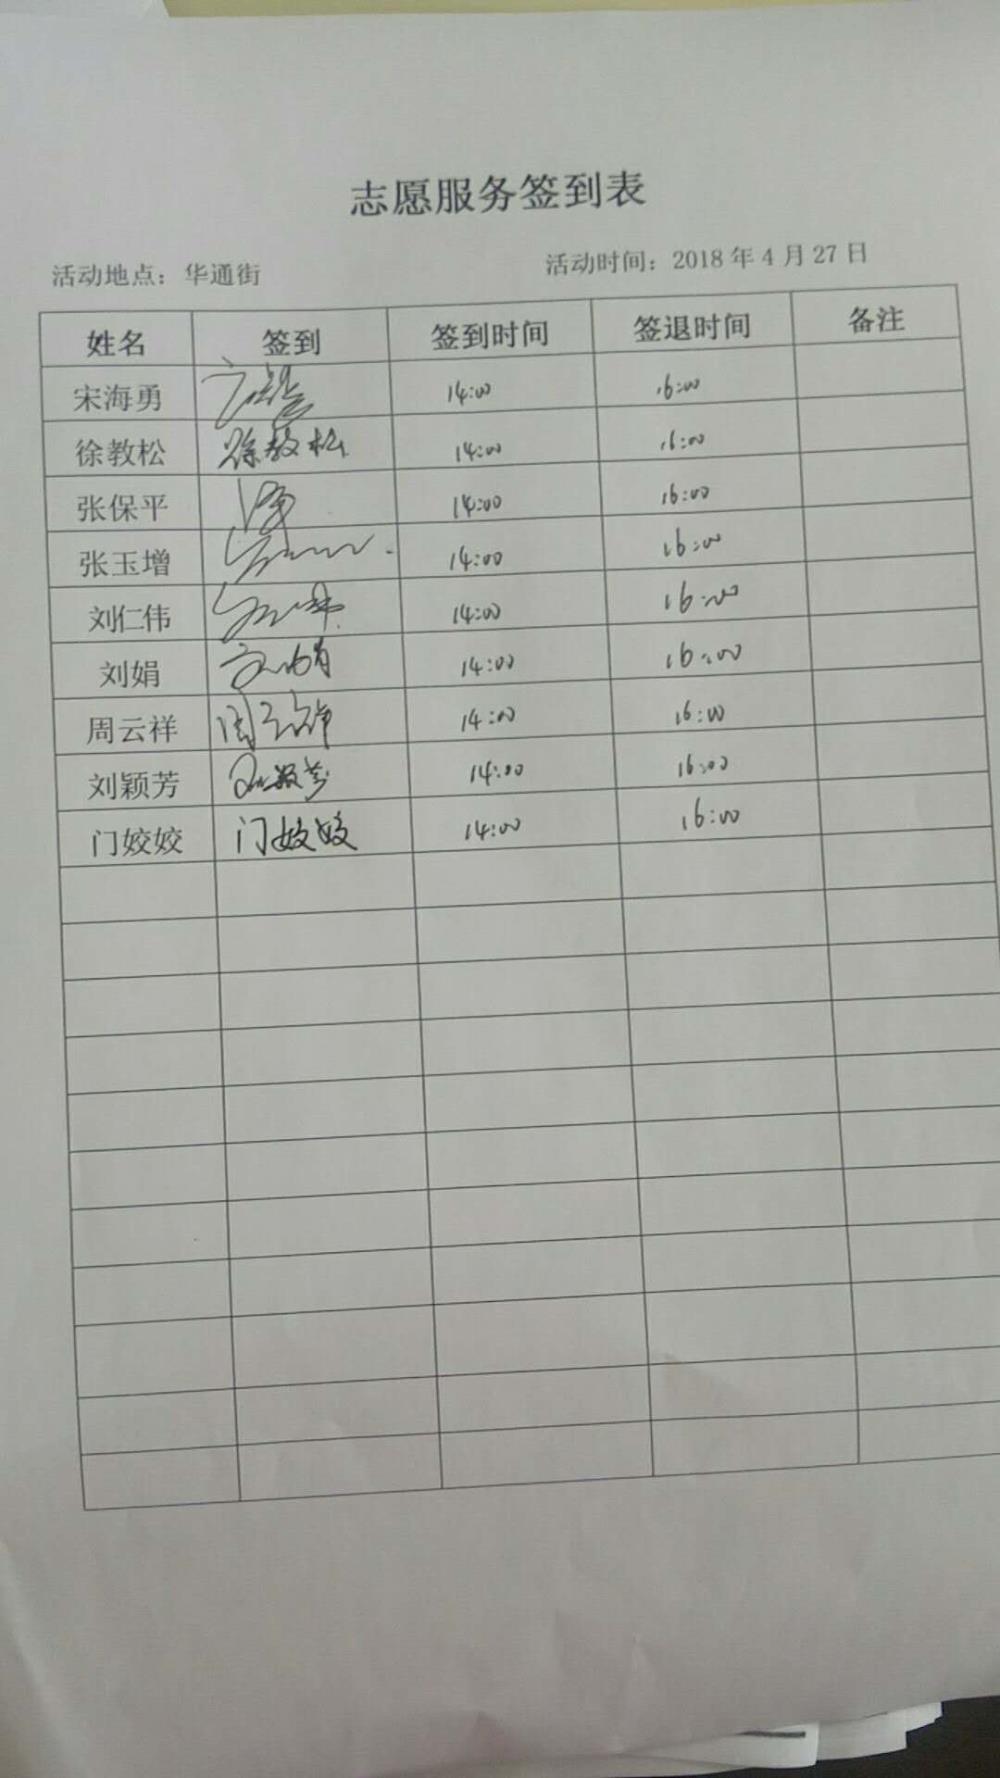 志愿服务签到表
活动地点：华通街 活动时间：2018年4月27日
姓名 签到 签到时间 签退时间 备注
宋海勇 14:00 16:00
徐教松 徐教松 14:00 16:00
张保平 14:00 16:00
张玉增 14:00 16:00
刘仁伟 14:00 16:00
刘娟 刘娟 14:00 16:00
周云祥 周云祥 14:00 16:00
刘颖芳 刘颖芳 14:00 16:00
门姣姣 门姣姣 14:00 16:00